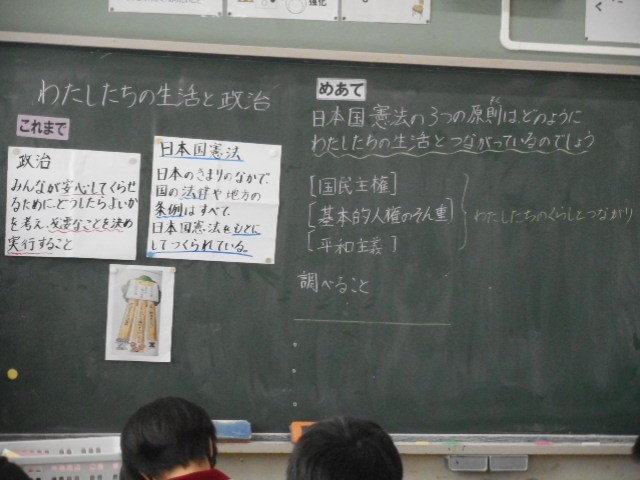 わたしたちの生活と政治
これまで
政治
みんなが安心してくらせ
るために、どうしたらよいか
を考え、必要なことを決め
実行すること
日本国憲法
日本のきまりのなかで、
国の法律や地方の
条例はすべて、
日本国憲法をもとに
してつくられている。
めあて
日本国憲法の3つの原則はどのように
わたしたちの生活とつながっているのでしょう
[国民主権]
[基本的人権のそん重]
[平和主義]
わたしたちのくらしとつながり
調べること
強化